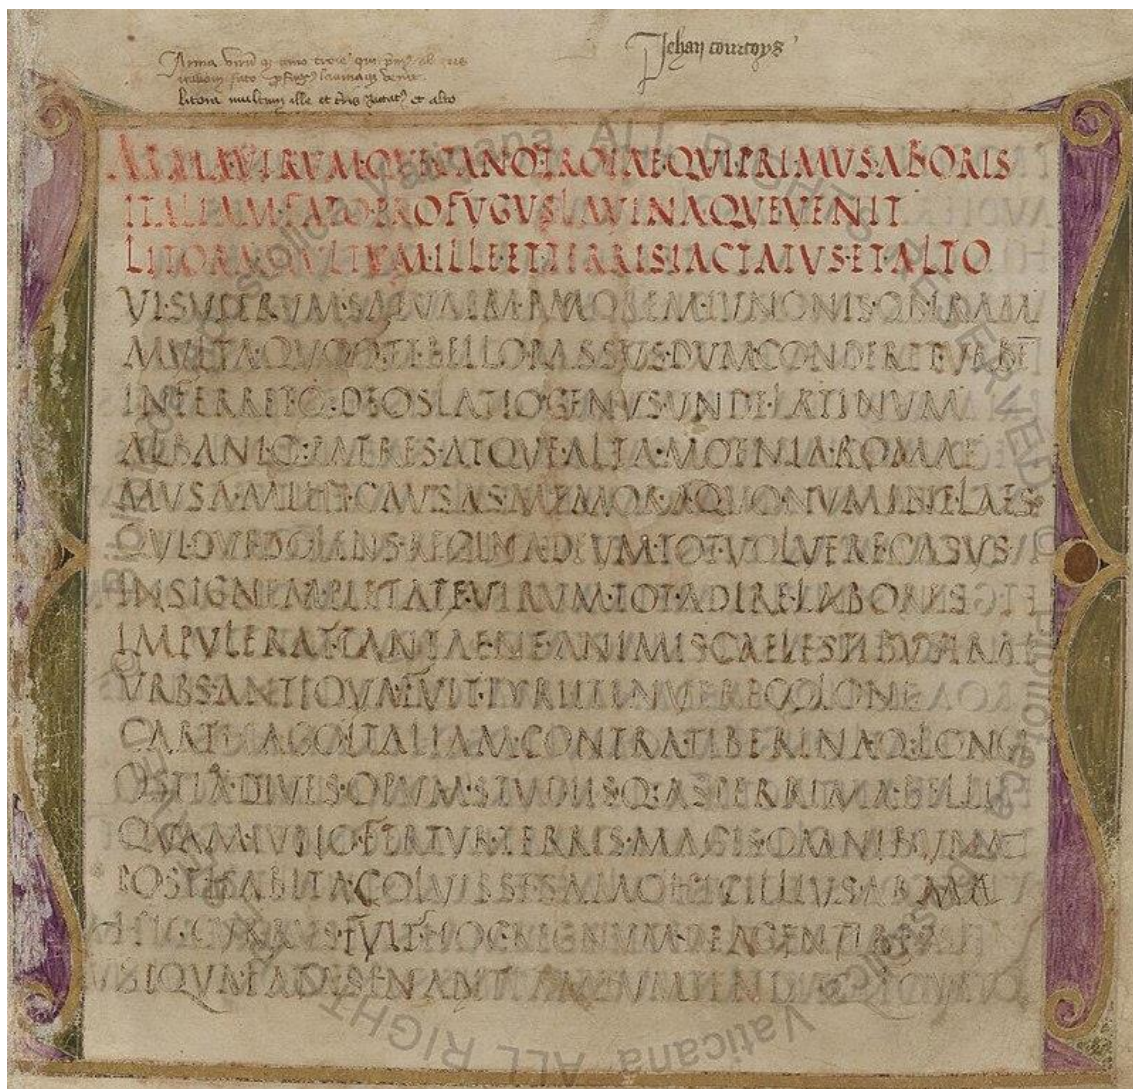 Arma virū q; cano troie qui pm9 ab oris
italiam fato ꝓfug9 lauinaq; venit
litora multum ille et tris iactat9 et alto
Jehan courtoys
ARMA·VIRUM·QUE·CANO·TROIAE·QUI·PRIMUS·AB·ORIS
ITALIAM·FATO·PROFUGUS·LAVINAQUE VENIT
LITORA·MULTUM·ILLE·ET·TERRIS·IACTATUS·ET·ALTO
VI·SUPERUM·SAEVAE MEMOREM·IUNONIS·OB·IRAM
MULTA·QUOQ·ET·BELLO·PASSUS·DUM·CONDERET·URBĒ
INFERRETQ·DEOS·LATIO·GENUS·UNDE·LATINUM
ALBANIQ·PATRES·ATQUE·ALTA·MOENIA·ROMAE
MUSA·MIHI·CAUSAS·MEMORA·QUO NUMINE·LAESO
QUIDVE·DOLENS·REGINA·DEUM·TOT·VOLVERE CASUS
INSIGNEM·PIETATE·VIRUM·TOT·ADIRE·LABORES
IMPULERIT·TANTAENE·ANIMIS CAELESTIBUS·IRAE
URBS·ANTIQUA·FUIT·TYRII TENUERE COLONI
CARTHAGO·ITALIAM·CONTRA·TIBERINAQ·LONGE
OSTIA·DIVES·OPUM·STUDIISQ·ASPERRIMA·BELLI
QUAM·IUNO·FERTUR·TERRIS·MAGIS·OMNIBUS UNAM
POSTHABITA·COLUISSE SAMO HIC ILLIUS·ARMA
HIC·CURRUS·FUIT·HOC REGNUM·DEA GENTIBUS
SI QUA FATA SINANT IAM TUM TENDIT